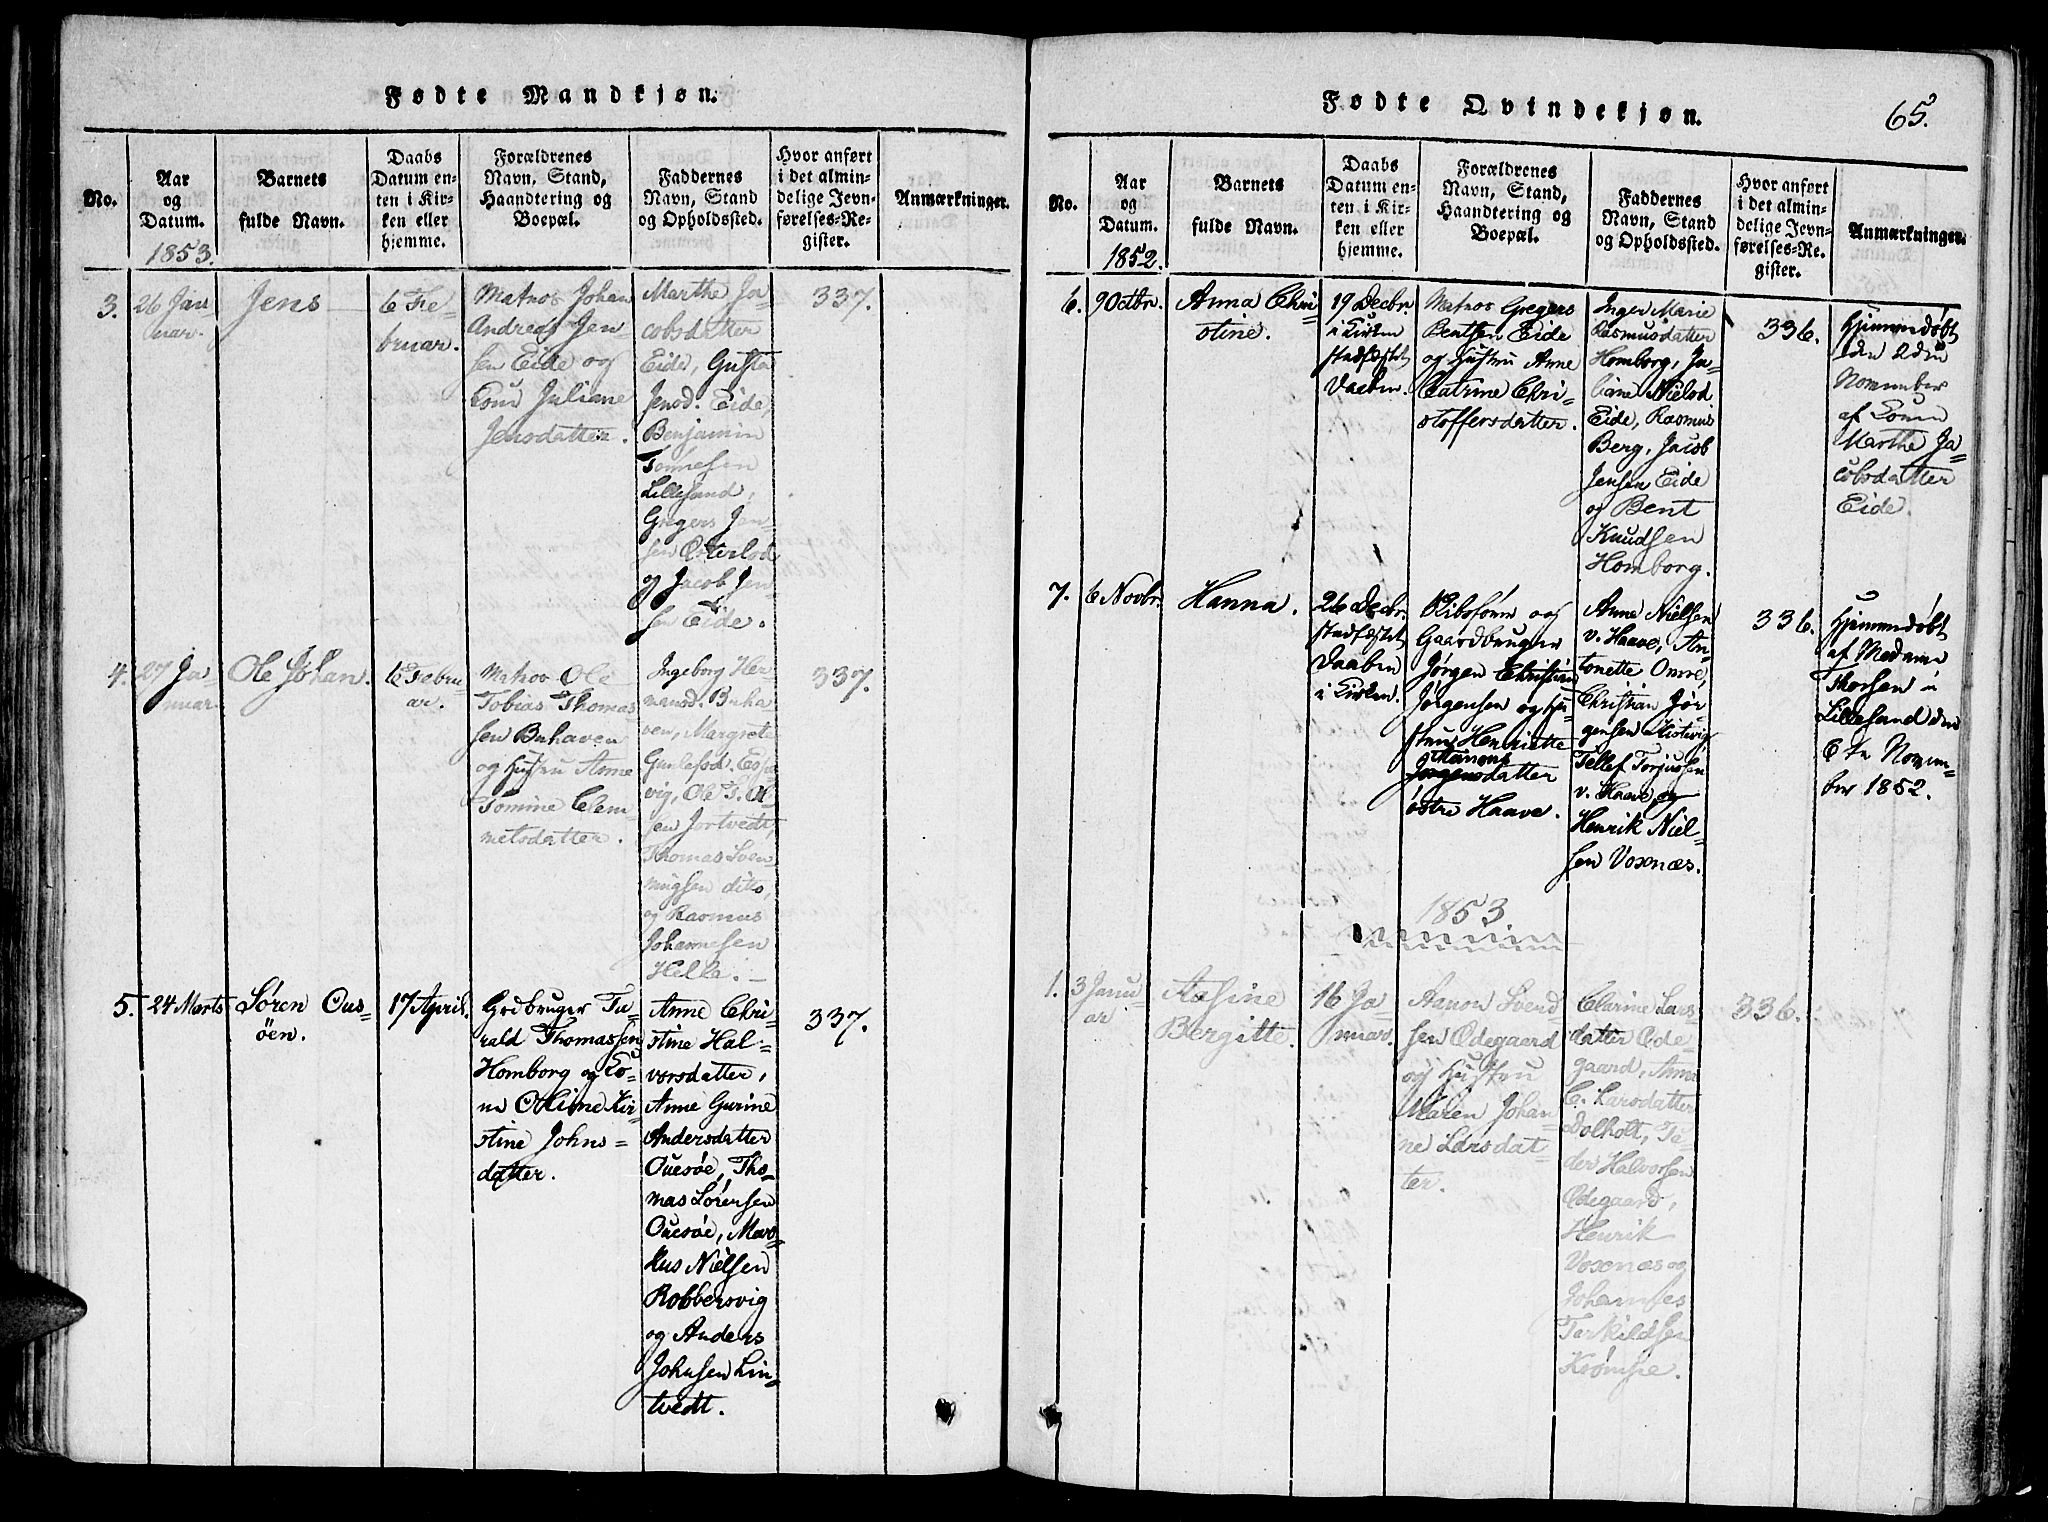 Fødte Mandkjøn.
No.
Aar
og
Datum.
1853.
Barnets
fulde Navn.
Daabs
Datum en-
ten i Kir-
ken eller
hjemme.
Forældrenes
Navn, Stand,
Haandtering og
Boepæl.
Faddernes
Navn, Stand
og Opholdssted.
Hvor anført
i det almin-
delige Jevn-
førelses-Re-
gister.
Anmærkninger.
3.
26 Jan
uar.
Jens
6 Fe=
bruar.
Matros Johan
Andreas Jen=
sen Eide og
Kone Juliane
Jensdatter.
Marthe Ja=
cobsdatter
Eide, Gusta
Jensd. Eide,
Benjamin
Tønnesen
Lillesand,
Gregers Jen=
sen Østerlod
og Jacob Jen=
sen Eide.
337.
4.
27 Ja=
nuar.
Ole Johan.
6 Febru=
ar.
Matros Ole
Tobias Thomas
sen Buhaven
og Hustru Anne
Tomine Clem=
metsdatter.
Ingeborg Her=
mansd. Buha
ven, Margrete
Gunlefsd.
vig, Ole T. Ol=
sen Jortvedt,
Thomas Sven=
nugsen dito,
og Rasmus
Johannesen
Hella.
337.
5.
24 Marts
Søren Oues=
öen.
17 April.
Grdbruger Ta=
rald Thomassen
Homborg og Ko=
ne Oline Kir=
stine Johns=
datter.
Anne Chri=
stine Hal=
vorsdatter,
Anne Gurine
Andersdatter
Ouesøe, Tho=
mas Sørensen
Ouesøe, Mar=
kus Nielsen
Robbersvig
og Anders
Johnsen Lin=
tvedt.
337.
Fødte Qvindekjøn.
65.
No.
Aar
og
Datum.
1852.
Barnets
fulde Navn.
Daabs
Datum en-
ten i Kir-
ken eller
hjemme.
Forældrenes
Navn, Stand,
Haandtering og
Boepæl.
Faddernes
Navn, Stand
og Opholdssted.
Hvor anført
i det almin-
delige Jevn-
førelses-Re-
gister.
Anmærkninger.
6.
9 Octbr.
Anna Chri=
stine.
19 Decbr.
i Kirken
stadfæstet
Daaben.
Matros Gregers
Bentsen Eide
og Hustru Anne
Catrine Chri=
stoffersdatter.
Inger Marie
Rasmusdatter
Homborg, Ju=
liane Nielsd
Eide, Rasmus
Berg, Jacob
Jensen Eide
og Bent
Knudsen
Homborg.
336.
Hjemmedøbt
den 2den
November
af Konen
Marthe Ja=
cobsdatter
Eide.
7.
6 Novbr.
Hanna.
26 Decbr.
stadfæstet
Daaben
i Kirken.
Skibsfører og
Gaardbruger
Jørgen Christian
Jørgensen og Hu=
stru Henriette
Jørgensdatter
østre Haave.
Anne Nielsen
v. Haave, An=
tonette Omre,
Christian Jør
gensen
Tellef Torjussen
v. Haave, og
Henrik Niel=
sen Voxnæs.
336.
Hjemmedøbt
af Madame
Thorsen i
Lillesand den
6te Novem=
ber 1852.
1853
1.
3 Janu
ar
Aasine
Bergitte.
16 Ja
nuar.
Aanon Svend
sen Ødegaard
og Hustru
Maren Johan
ne Larsdat=
ter.
Clarine Lars=
datter Øde=
gaard, Anna
C. Larsdatter
Dolholt, Te=
der Halvorsen
Ødegaard,
Henrik
Voxnæs og
Johannes
Terkildsen
Krømpe.
336.